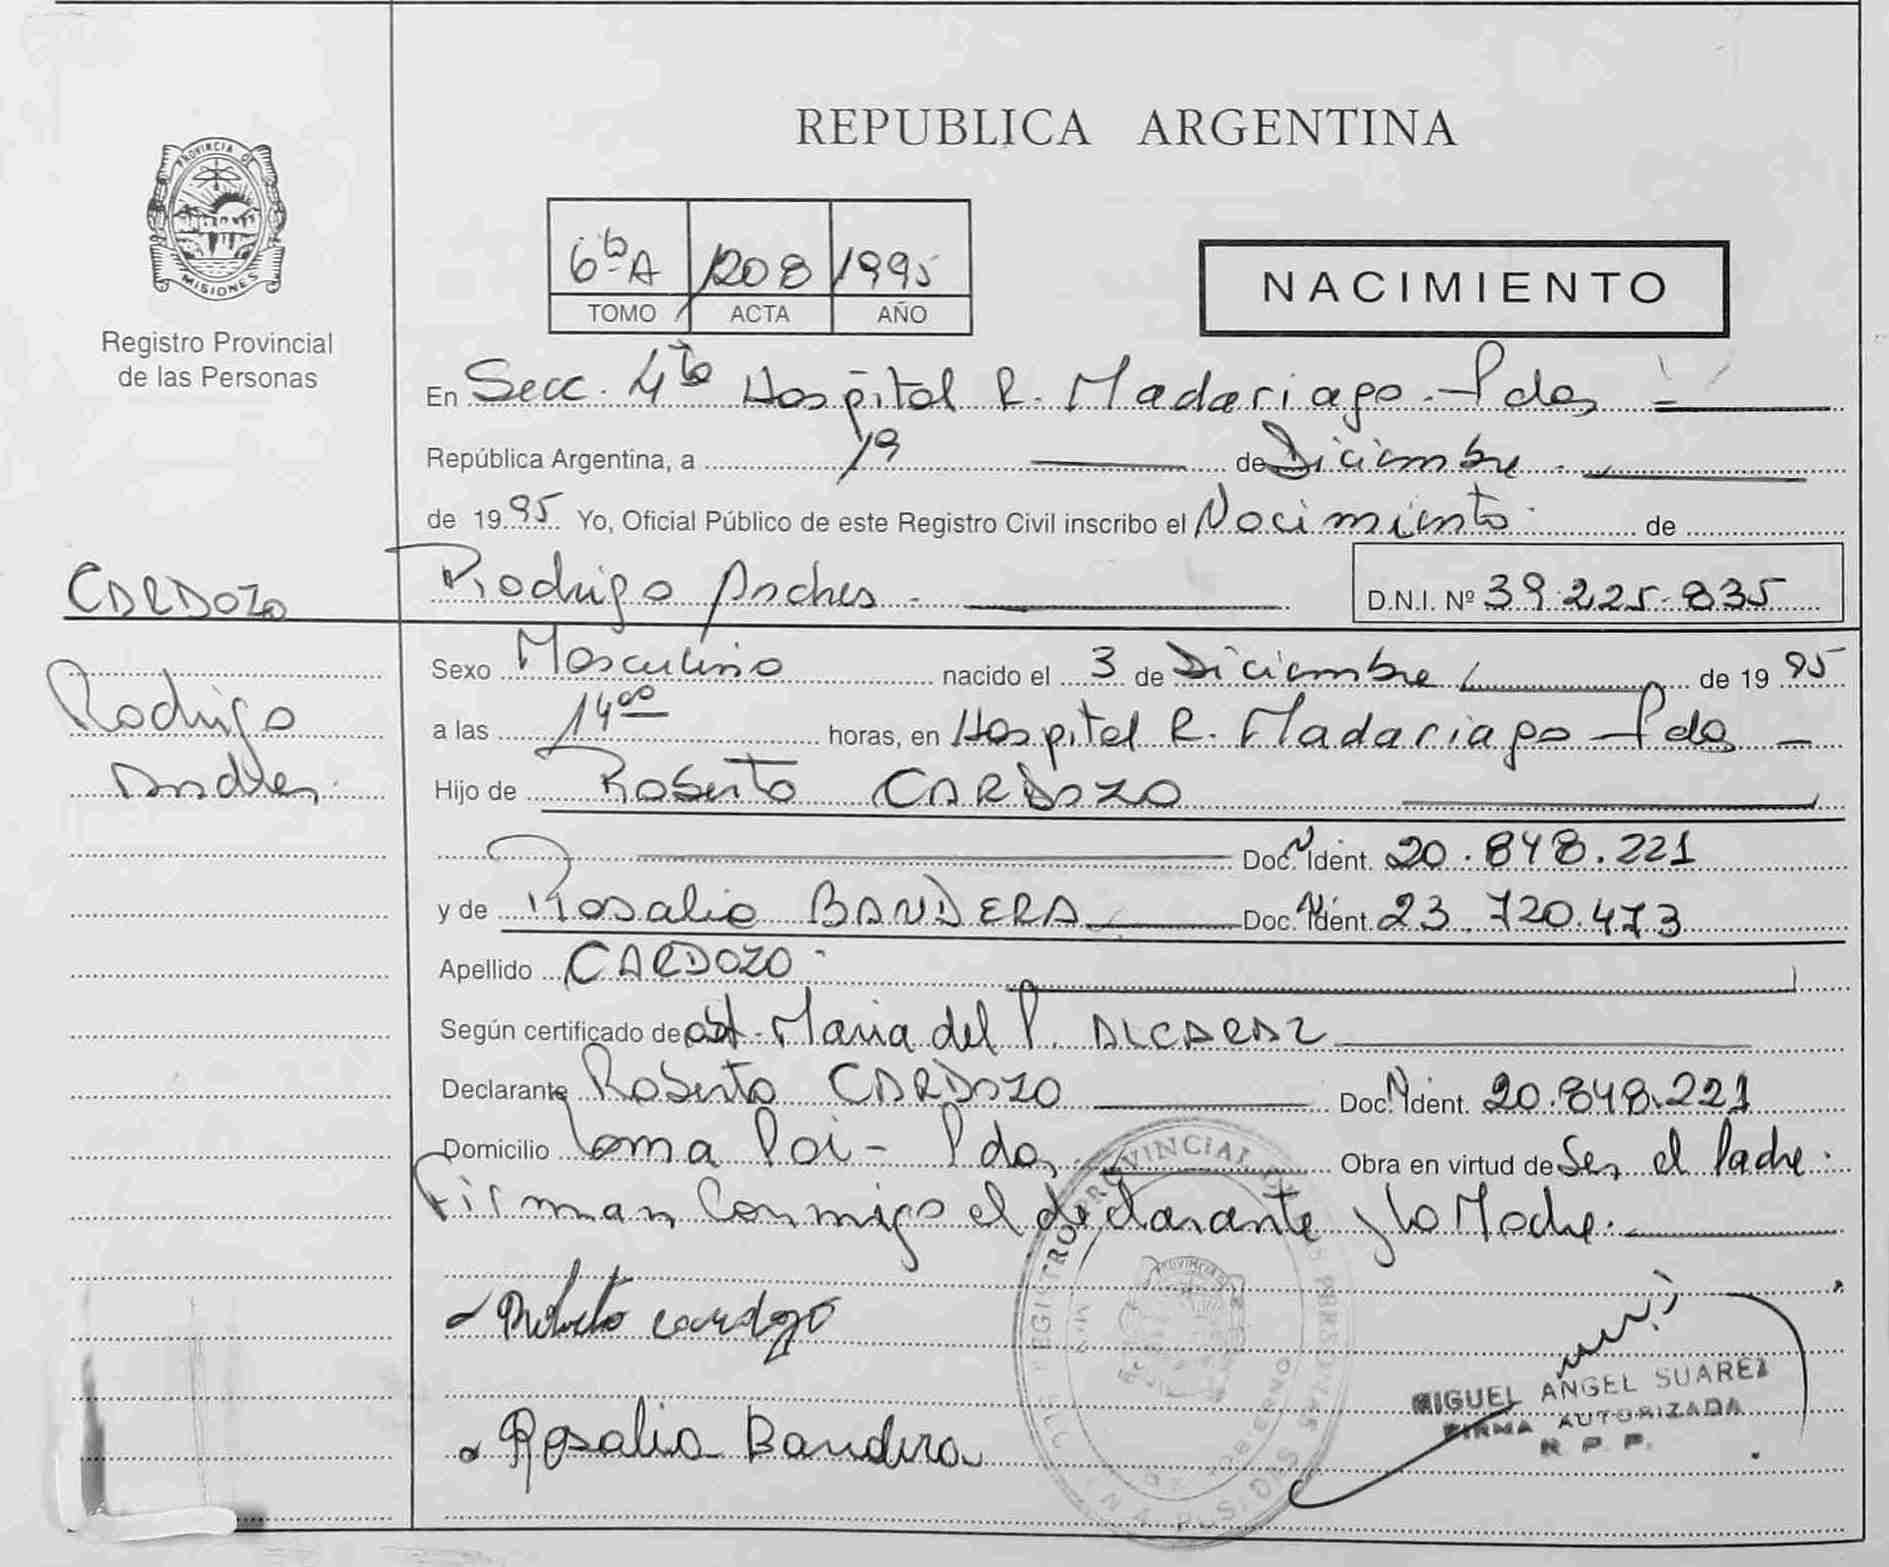 REPUBLICA ARGENTINA
PROVINCIA DE
MISIONES
Registro Provincial
de las Personas
6to A 1208 1995
TOMO ACTA AÑO
NACIMIENTO
En Secc. 4ta Hospital R. Madariaga - Pdas
República Argentina, a 19 de Diciembre
de 1995 Yo, Oficial Público de este Registro Civil inscribo el Nacimiento de
CARDOZO
Rodrigo Andres
Rodrigo Andres D.N.I. Nº 39.225.835
Sexo Masculino nacido el 3 de Diciembre de 1995
a las 14 00 horas, en Hospital R. Madariaga - Pdas
Hijo de Roberto CARDOZO
Doc. N Ident. 20.848.221
y de Rosalia BANDERA Doc. N Ident. 23.720.473
Apellido CARDOZO
Según certificado de Obst. Maria del P. ALCARAZ
Declarante Roberto CARDOZO Doc. N Ident. 20.848.221
Domicilio Loma Poi - Pdas Obra en virtud de Ser el Padre.
Firman Conmigo el declarante y la Madre.
Roberto cardozo
Rosalia Bandera
REGISTRO PROVINCIAL DE LAS PERSONAS
MIGUEL ANGEL SUAREZ
FIRMA AUTORIZADA
R. P. P.